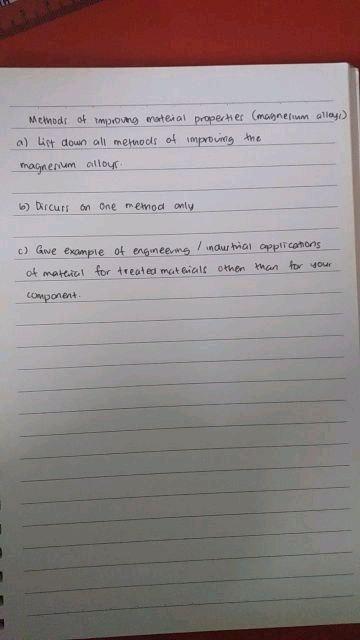 Methods of improving material properties (magnesium alloys)
a) List down all methods of improving the
magnesium alloys.
b) Discuss on one method only
c) Give example of engineering / industrial applications
of material for treated materials other than for your
component.